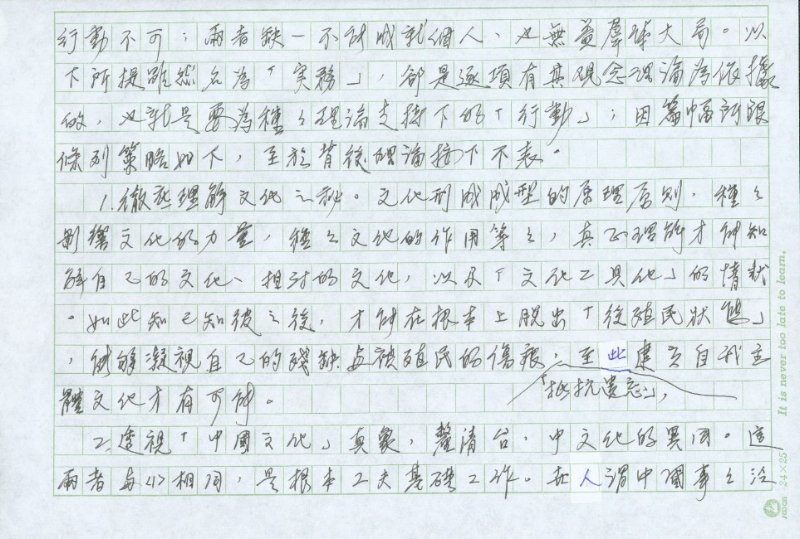 行動不可；兩者缺一不能成就個人，也無益羣體大局。以
下所提雖然名為「實務」，卻是逐項有其觀念理論為依據
的，也就是要為種種理論支撐下的「行動」；因篇幅所限
條列策略如下，至於背後理論按下不表。
1.徹底理解文化之秘。文化形成成型的原理原則，種種
影響文化的力量，種種文化的作用等等，真正理解才能知
解自己的文化、相對的文化，以及「文化工具化」的情狀
。如此知己知彼之後，才能在根本上脫出「後殖民狀態」
，能夠凝視自己的殘缺與被殖民的傷痕，至此
「抵抗遺忘」，
自我主
體文化才有可能。
2.透視「中國文化」真象，釐清台、中文化的異同。這
兩者每以相同，是根本工夫基礎工作。在人謂中國事之
It is never too late to learn.
24×25